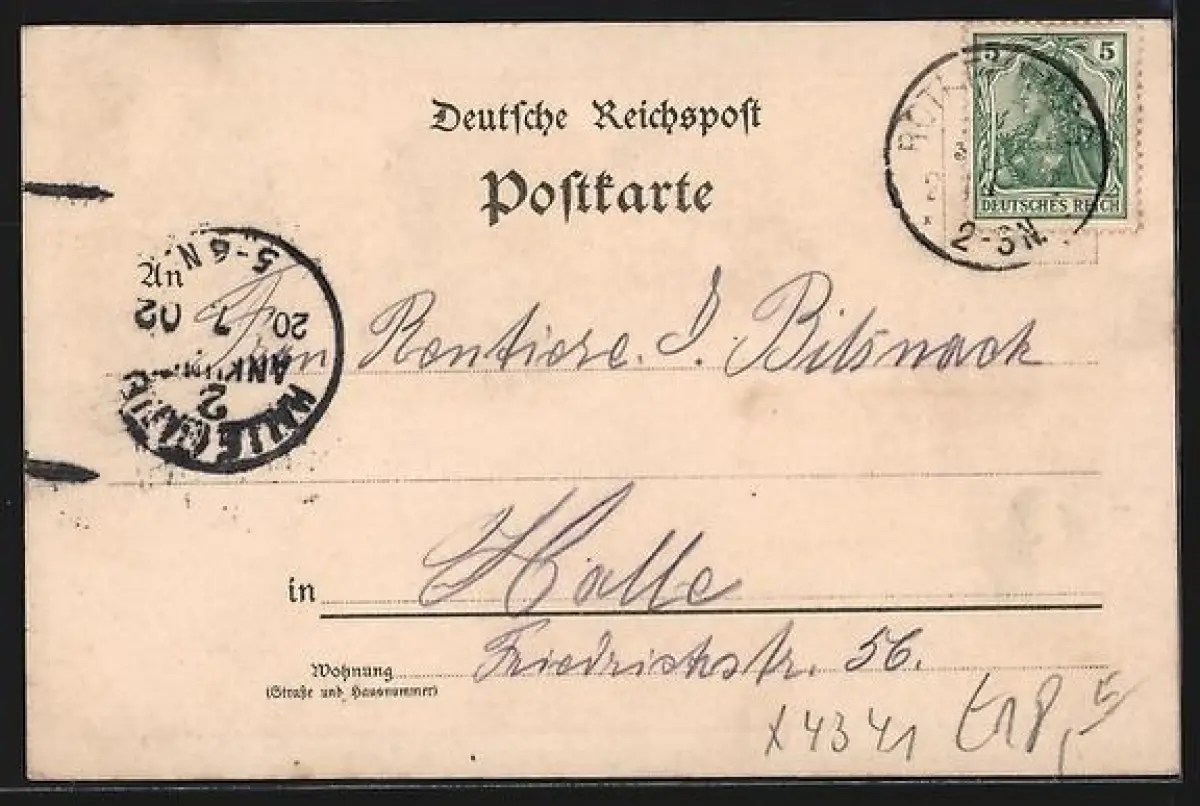 5 5
DEUTSCHES REICH
2-3N.
Deutsche Reichspost
Postkarte
An
5-6N
20 7 02
ANKUNFT
2
HALLE (SAALE)
Frau Rentiere. J. Bilsnack
in Halle
Wohnung Friedrichstr. 56.
(Straße und Hausnummer)
x4341